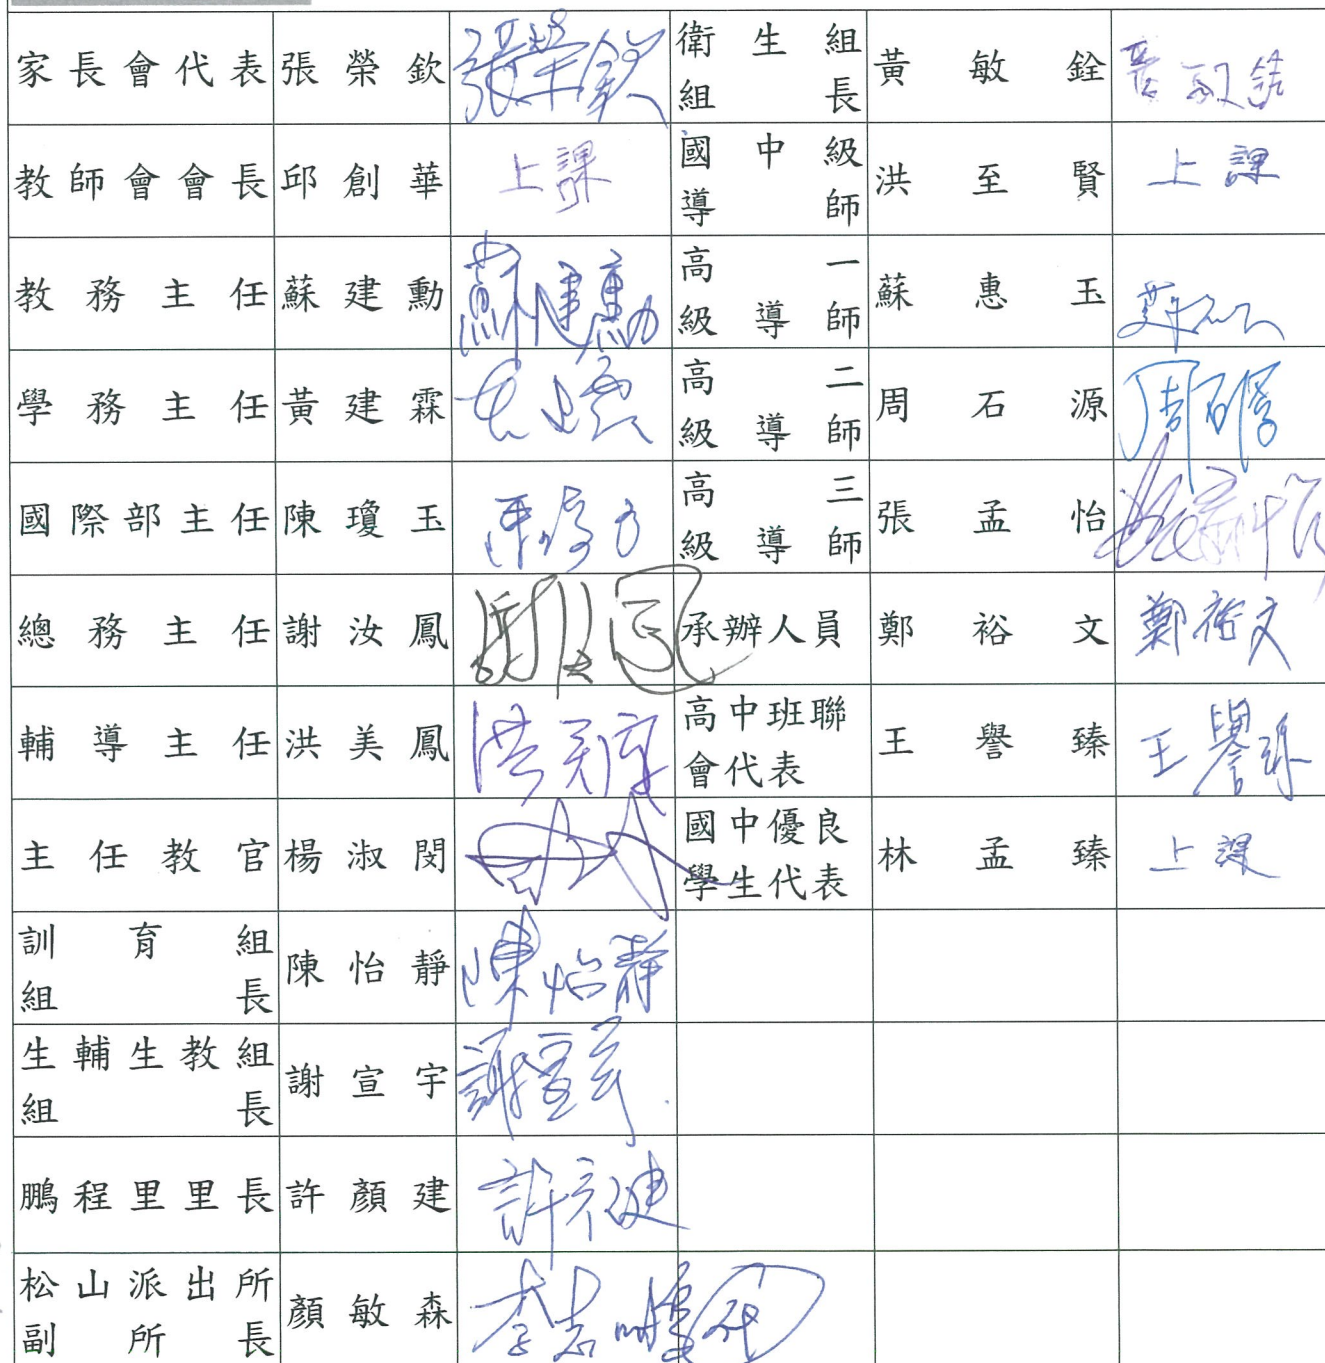 家長會代表 張榮欽 張榮欽 衛生組組長 黃敏銓 黃敏銓
教師會會長 邱創華 上課 國中級導師 洪至賢 上課
教務主任 蘇建勳 蘇建勳 高一級導師 蘇惠玉
學務主任 黃建霖 高二級導師 周石源 周石源
國際部主任 陳瓊玉 高三級導師 張孟怡
總務主任 謝汝鳳 承辦人員 鄭裕文 鄭裕文
輔導主任 洪美鳳 高中班聯會代表 王譽臻 王譽臻
主任教官 楊淑閔 國中優良學生代表 林孟臻 上課
訓育組組長 陳怡靜 陳怡靜
生輔生教組組長 謝宣宇 謝宣宇
鵬程里里長 許顏建
松山派出所副所長 顏敏森